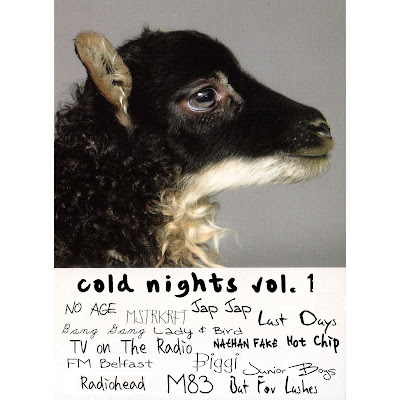 cold nights vol. 1
NO AGE MSTRKRFT Jap Jap Last Days
Bang Gang Lady & Bird
TV on The Radio NATHAN FAKE Hot Chip
FM Belfast Þiggi Junior Boys
Radiohead M83 Bat For Lashes